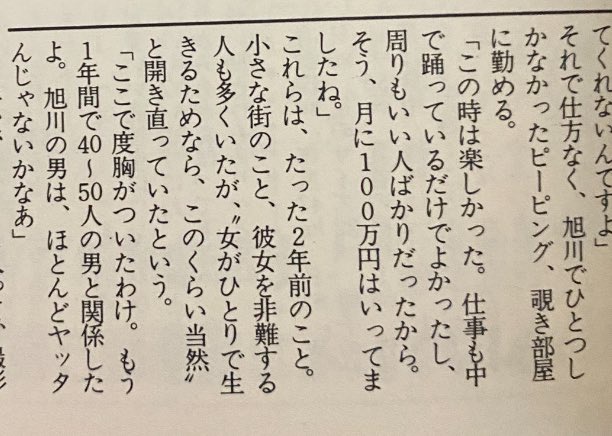 てくれないんですよ」
それで仕方なく、旭川でひとつし
かなかったピーピング、覗き部屋
に勤める。
「この時は楽しかった。仕事も中
で踊っているだけでよかったし、
周りもいい人ばかりだったから。
そう、月に100万円はいってま
したね。」
これらは、たった2年前のこと。
小さな街のこと、彼女を非難する
人も多くいたが、〝女がひとりで生
きるためなら、このくらい当然〟
と開き直っていたという。
「ここで度胸がついたわけ。もう
1年間で40〜50人の男と関係した
よ。旭川の男は、ほとんどヤッタ
んじゃないかなあ」